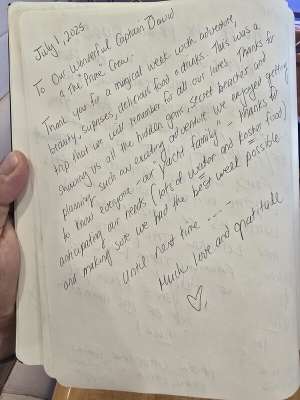 July 1, 2025
To Our Wonderful Captain David
& The "Prime" Crew -
Thank you for a magical week with adventure,
beauty, suprises, delicious food & drinks. This was a
trip that we will remember for all our lives. Thanks for
showing us all the hidden gems, secret beaches and
planning such an exciting adventure. We enjoyed getting
to know everyone - our yacht family - thanks for
anticipating our needs (lots of water and kosher food)
and making sure we had the best week possible
Until next time ----
Much love and gratitude